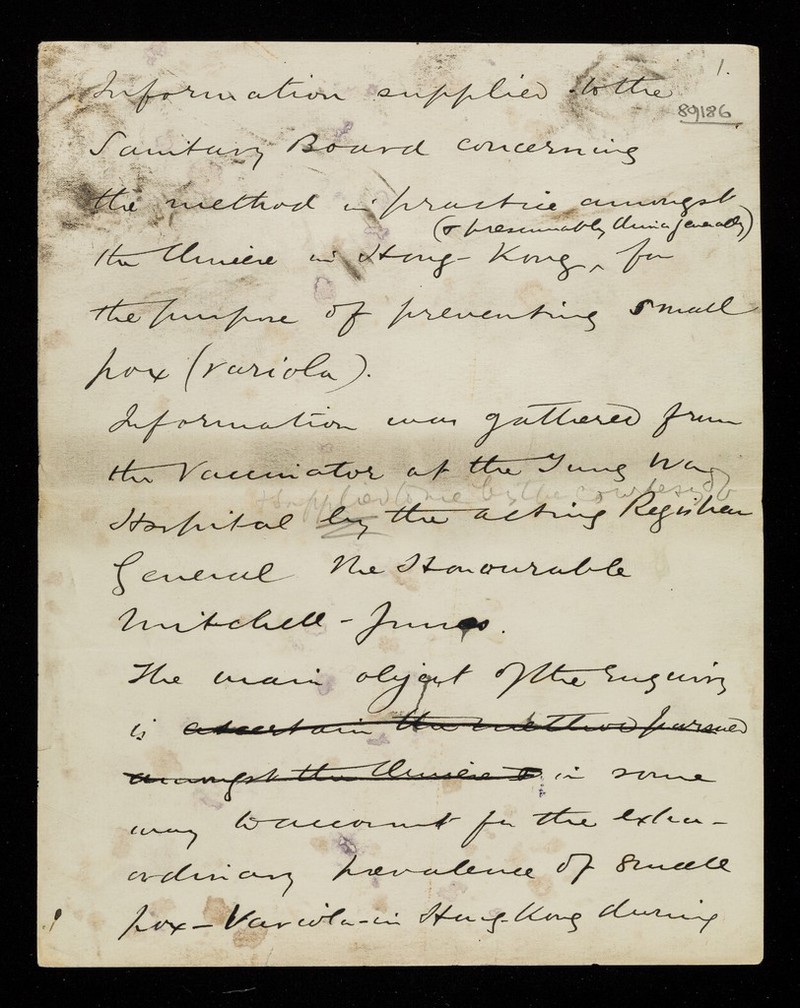 1.
Information supplied to the
89186
Sanitary Board concerning
the method in practice amongst
(& presumably China generally)
the Chinese in Hong-Kong ^ for
the purpose of preventing small
pox (variola).
Information was gathered from
the Vaccinator at the Tung Wa
& supplied to me by the courtesy of
Hospital by the acting Registrar
General the Honourable
Mitchell-Innes.
The main object of the Enquiry
is ascertain the method pursued
amongst the Chinese & in some
way to account for the extra-
ordinary prevalence of small
pox - Variola - in Hong-Kong during